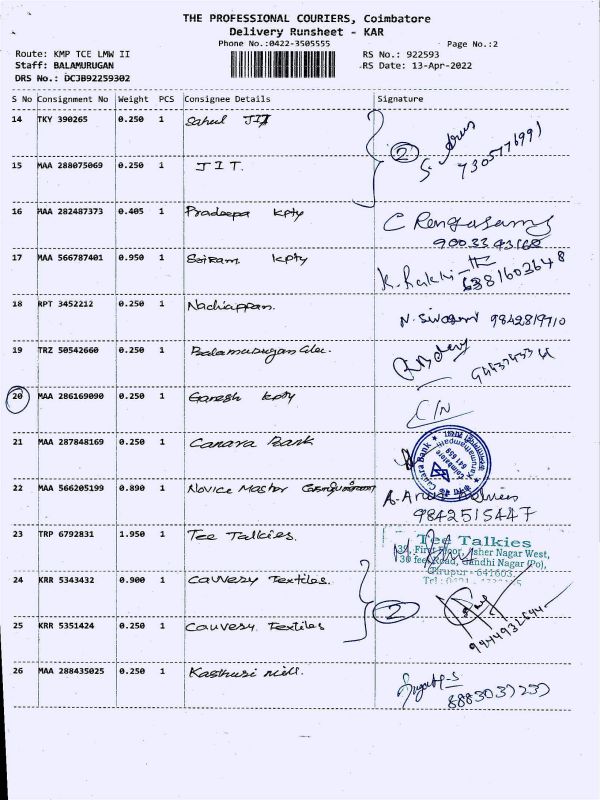 THE PROFESSIONAL COURIERS, Coimbatore
Delivery Runsheet - KAR
Phone No.:0422-3505555
Page No.:2
Route: KMP TCE LMW II
RS No.: 922593
Staff: BALAMURUGAN
RS Date: 13-Apr-2022
DRS No.: DCJB92259302
S No Consignment No Weight PCS Consignee Details Signature
14 TKY 390265 0.250 1 Sahul JIT
2
15 MAA 288075069 0.250 1 JIT.
16 MAA 282487373 0.405 1 Pradeepa kpty C Rengasamy
17 MAA 566787401 0.950 1 Sairam kpty K. Rakki
6381602648
18 RPT 3452212 0.250 1 Nachiappan. 9842819710
19 TRZ 50542660 0.250 1 Balamurugan
20 MAA 286169090 0.250 1 Ganesh kpty C/N
21 MAA 287848169 0.250 1 Canara Bank
Canara Bank
Coimbatore
641 659
22 MAA 566205199 0.890 1 Novice Master
9842515447
23 TRP 6792831 1.950 1 Tee Talkies.
Tee Talkies
First Floor, Asher Nagar West,
30 feet Road, Gandhi Nagar (Po),
Tirupur - 641603.
24 KRR 5343432 0.900 1 Cauvery Textiles.
2
25 KRR 5351424 0.250 1 Cauvery Textiles
26 MAA 288435025 0.250 1 Kasthuri mill.